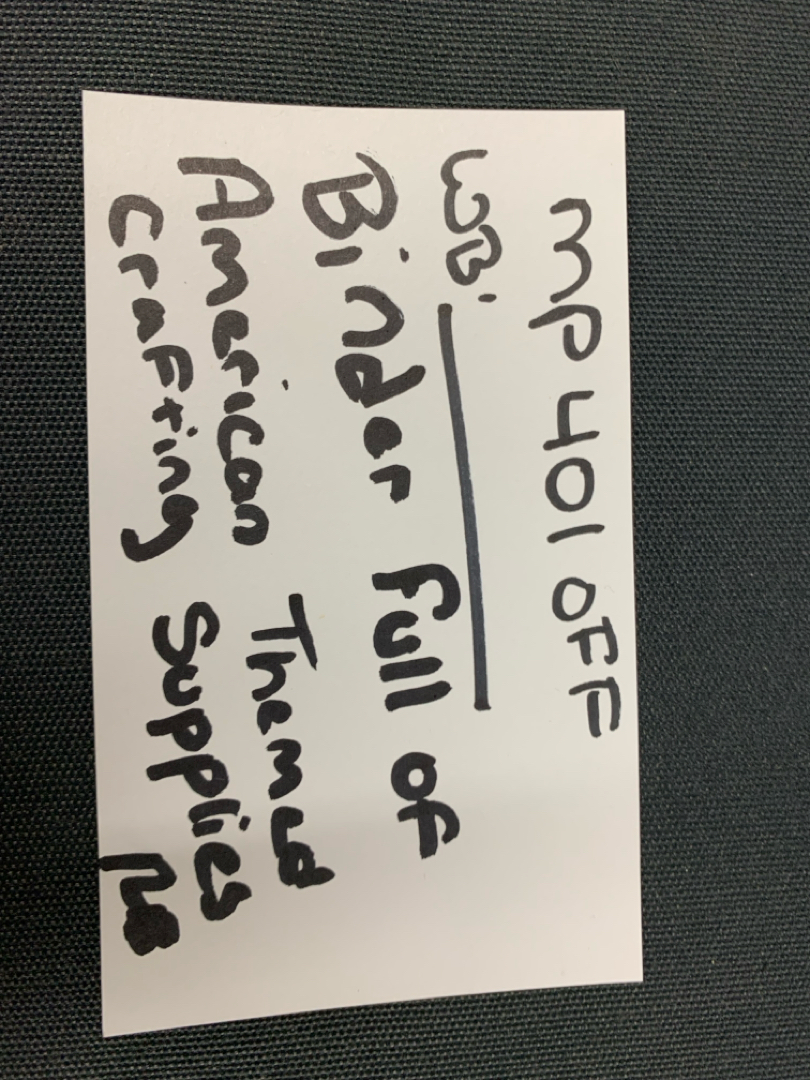 MP 401 OFF
WB.
Binder Full of
American Themed
Crafting Supplies